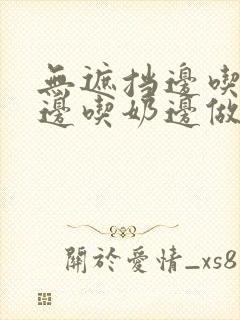 無遮挡邊喫
邊喫奶邊做
關於愛情_xs8